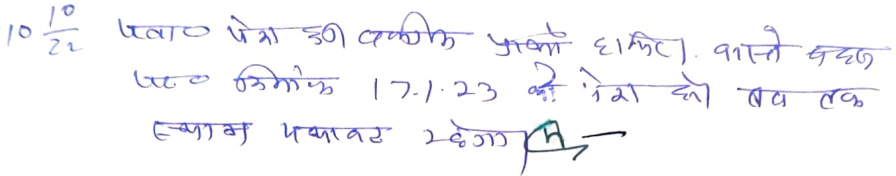 10 10/22 पत्रा० पेश हुई वकील पक्षकों हाजिर। वास्ते बहस
पत्रा० दिनांक 17.1.23 को पेश हो तब तक
स्थगन यथावत रहेगा